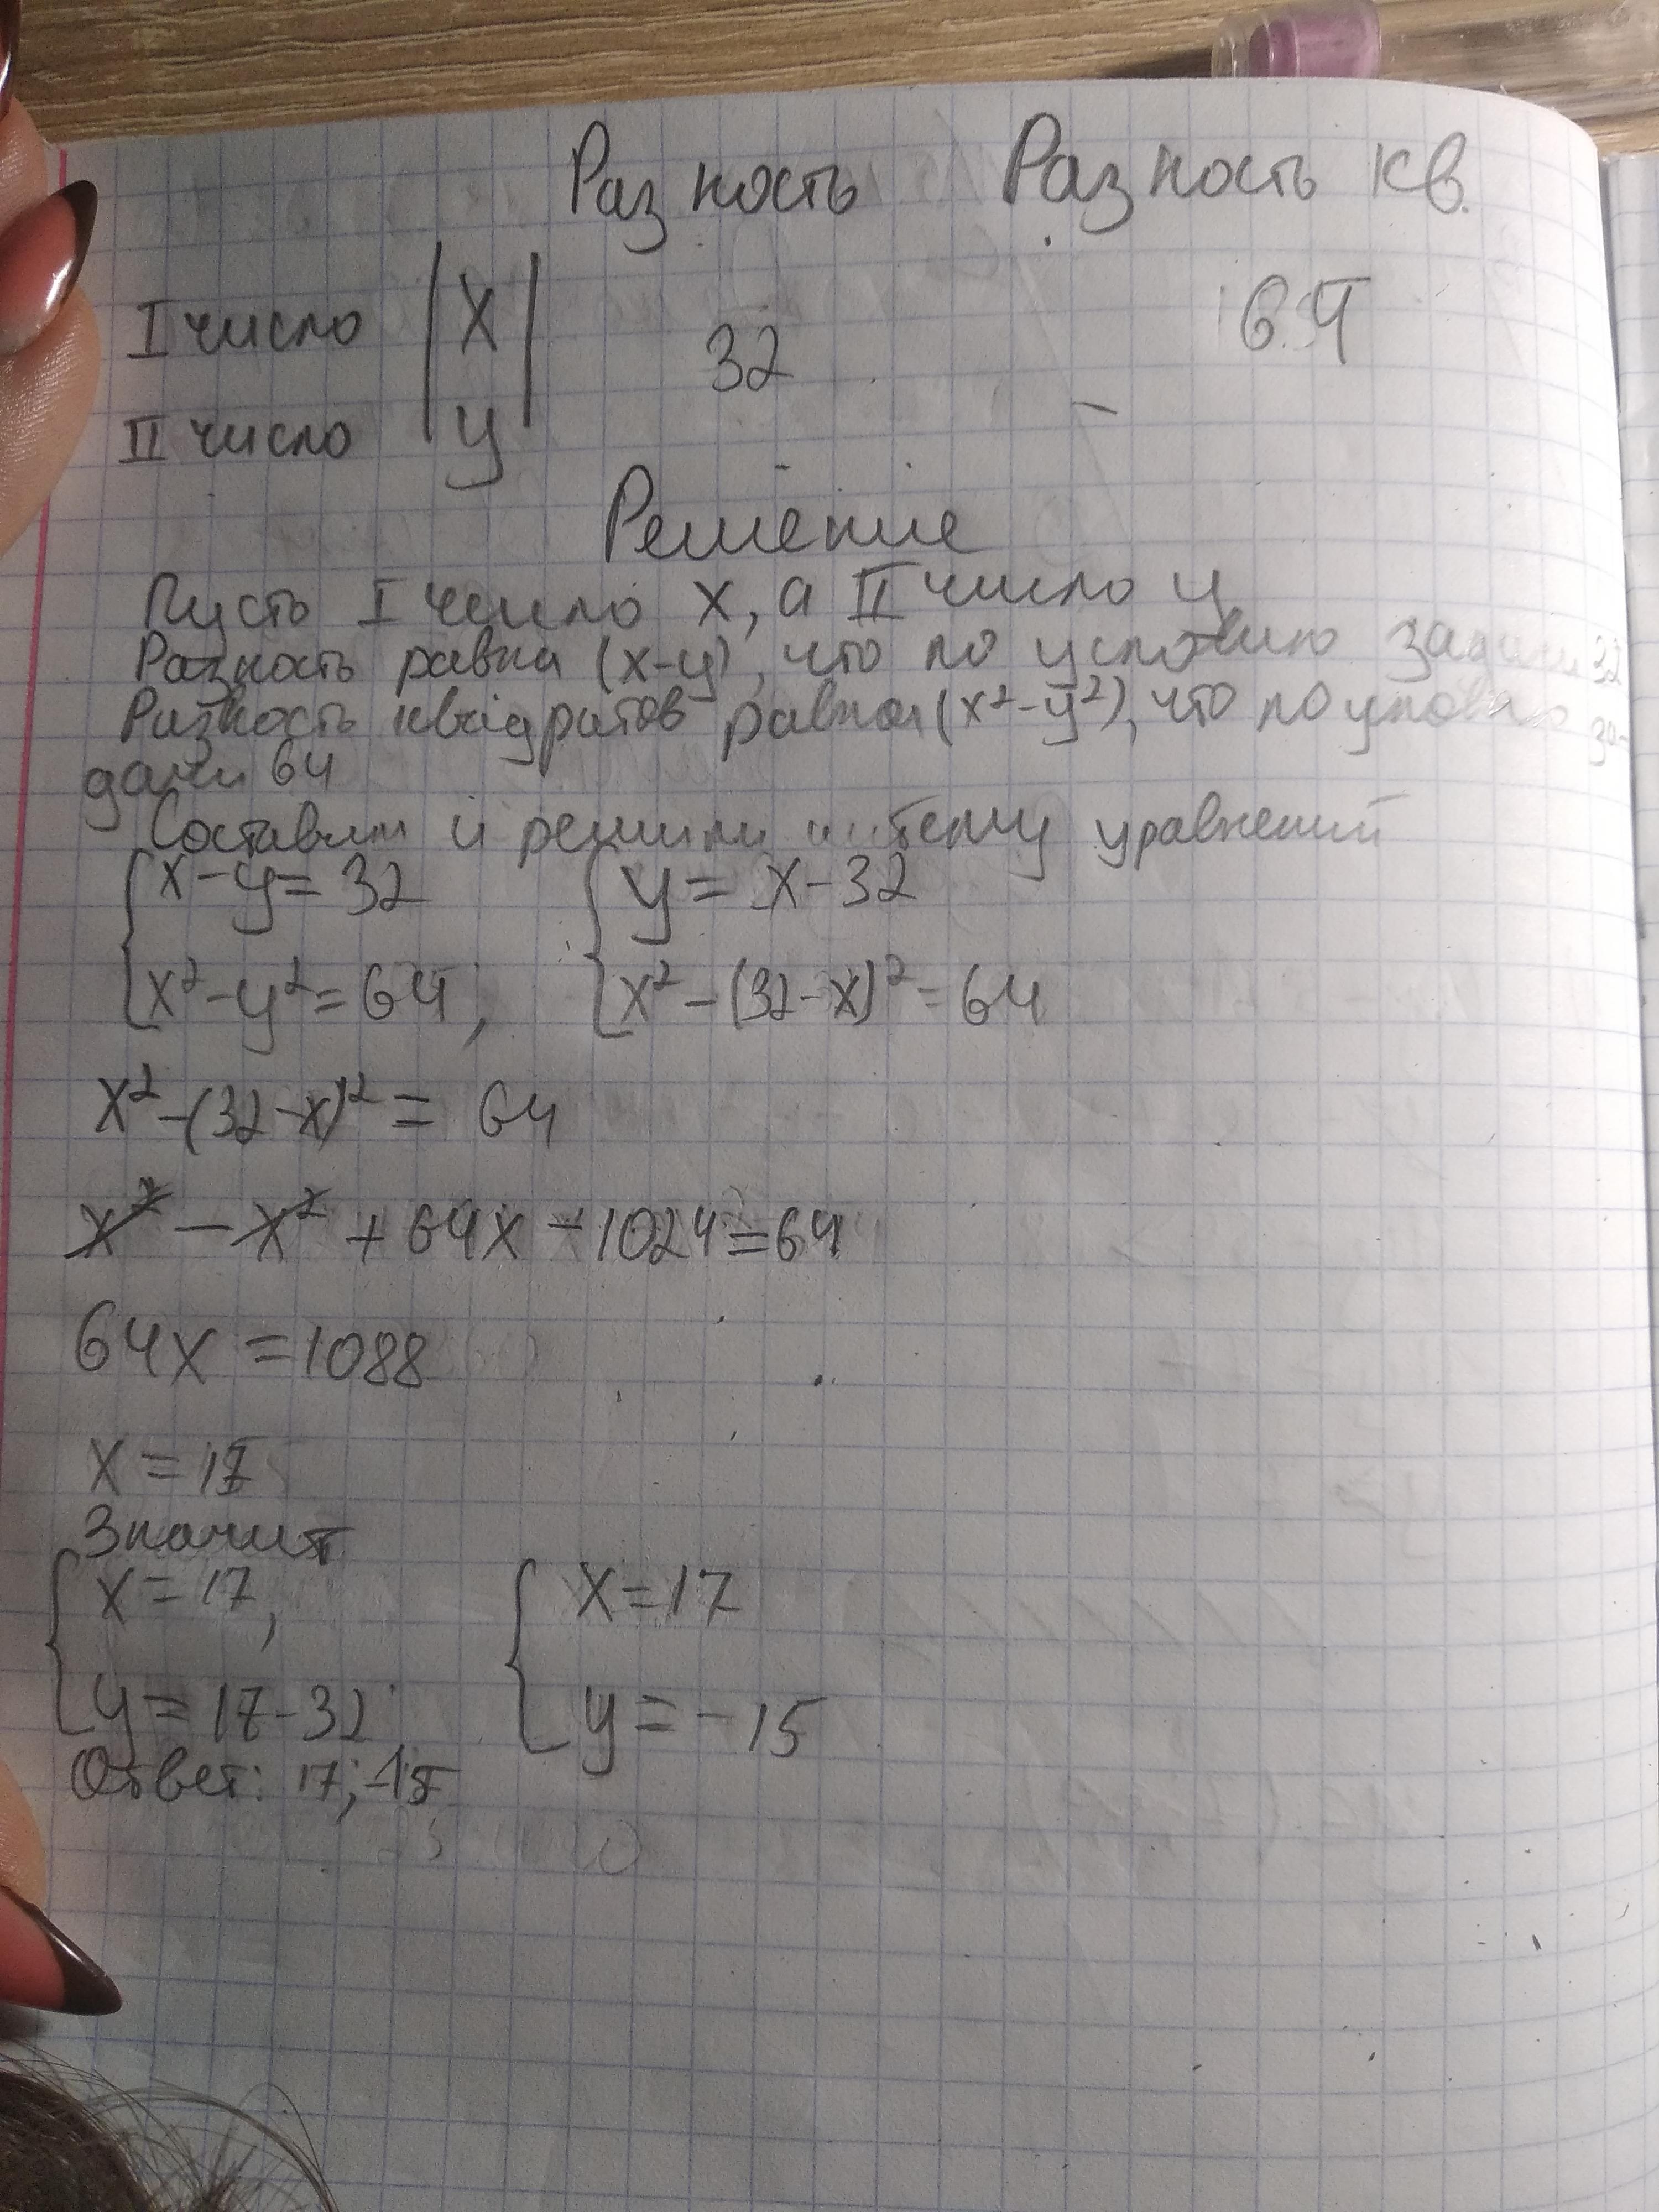 Разность Разность кв.
I число | X |
32 64
II число | y |
Решение
Пусть I число x, а II число y
Разность равна (x-y), что по условию задачи 32
Разность квадратов равна (x²-y²), что по условию за-
дачи 64
Составим и решим систему уравнений
{ x-y=32 { y=x-32
{ x²-y²=64; { x²-(32-x)²=64
x²-(32-x)²= 64
x² - x² + 64x - 1024 = 64
64x = 1088
x = 17
Значит
{ x=17, { x=17
{ y=17-32 { y=-15
Ответ: 17; -15